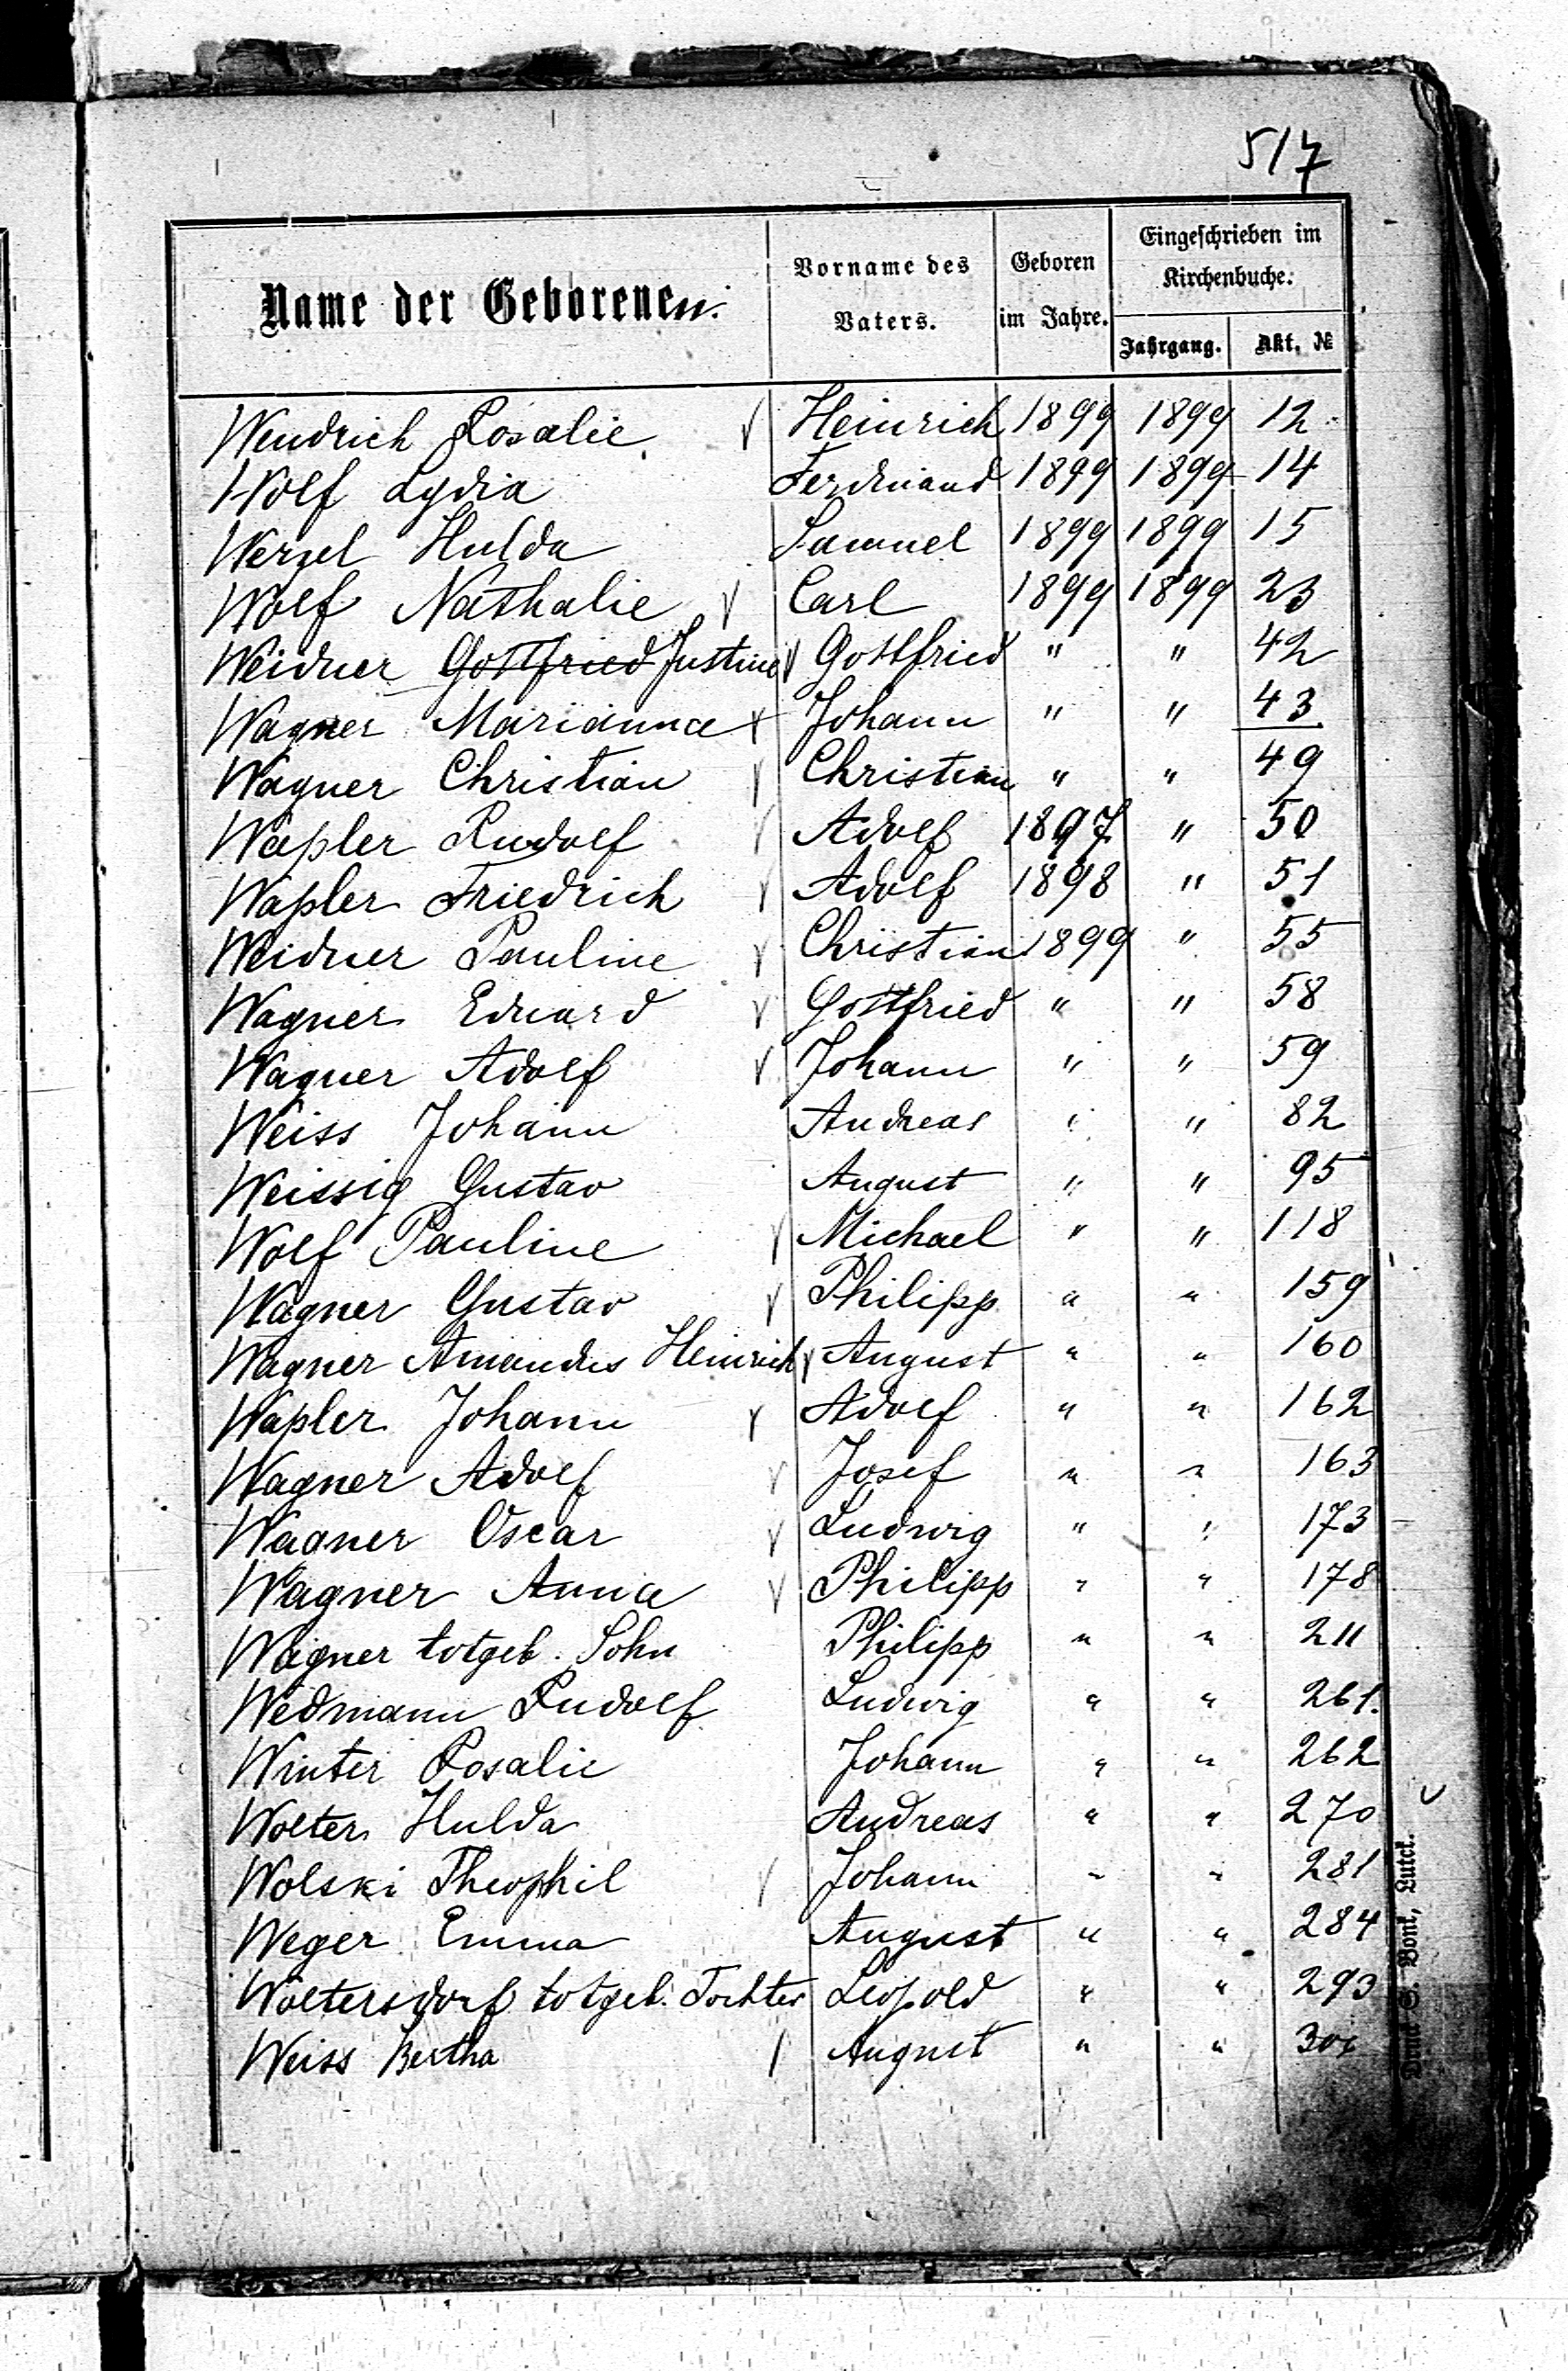 517
Name der Geborenen.
Vorname des Vaters.
Geboren im Jahre.
Eingeschrieben im Kirchenbuche:
Jahrgang. Akt. №
Wendrich Rosalie Heinrich 1899 1899 12
Wolf Lydia Ferdinand 1899 1899 14
Wenzel Hulda Samuel 1899 1899 15
Wolf Nathalie Carl 1899 1899 23
Weidner Gottfried Justine Gottfried " " 42
Wagner Marianna Johann " " 43
Wagner Christian Christian " " 49
Wapler Rudolf Adolf 1897 " 50
Wapler Friedrich Adolf 1898 " 51
Weidner Pauline Christian 1899 " 55
Wagner Eduard Gottfried " " 58
Wagner Adolf Johann " " 59
Weiss Johann Andreas " " 82
Weissig Gustav August " " 95
Wolf Pauline Michael " " 118
Wagner Gustav Philipp " " 159
Wagner Amandus Heinrich August " " 160
Wapler Johann Adolf " " 162
Wagner Adolf Josef " " 163
Wagner Oscar Ludwig " " 173
Wagner Anna Philipp " " 178
Wagner totgeb. Sohn Philipp " " 211
Wedmann Rudolf Ludwig " " 261.
Winter Rosalie Johann " " 262
Wolter Hulda Andreas " " 270
Wolski Theophil Johann " " 281
Weger Emma August " " 284
Woltersdorf totgeb. Tochter Leopold " " 293
Weiss Bertha August " "
Druck S. Bonk, Lutck.